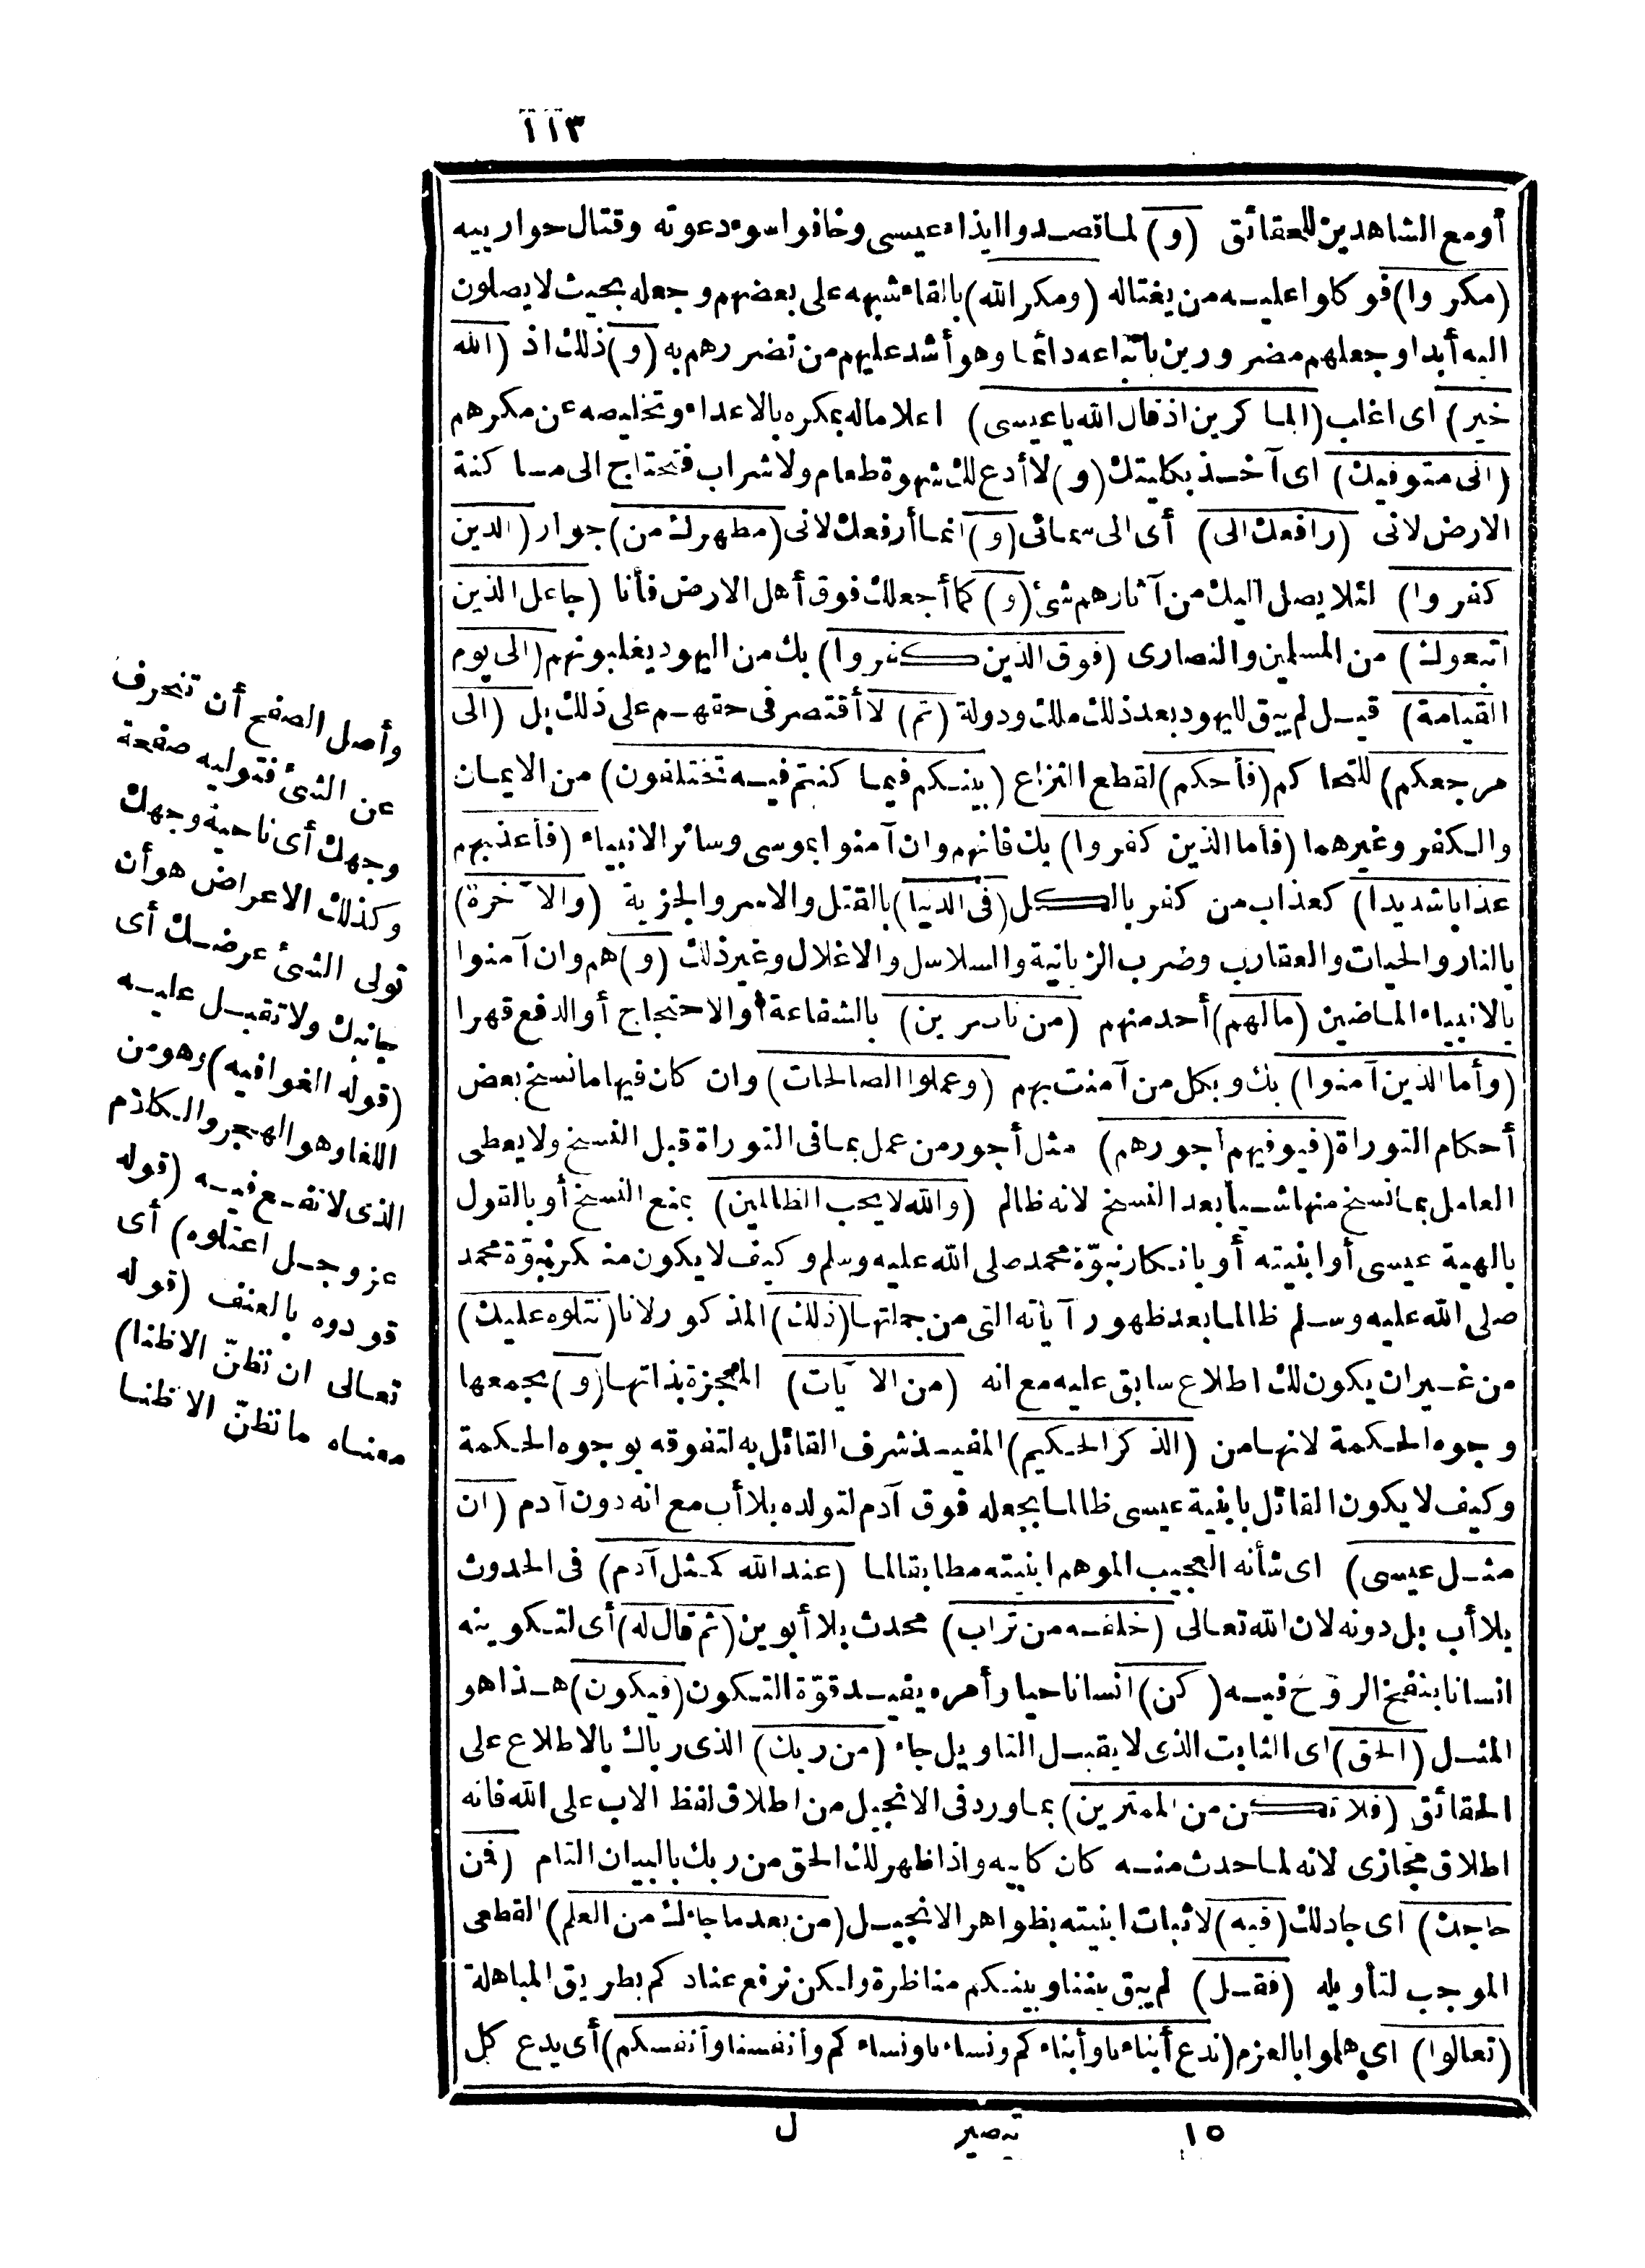 ١١٣
أو مع الشاهدين للحقائق (و) لما تصدوا ايذاء عيسى وخافوا سوء دعوته وقتال حوارييه
(مكروا) فوكلوا عليه من يغتاله (ومكر الله) بالقاء شبهه على بعضهم وجعله بحيث لا يصلون
اليه أبدا وجعلهم مضرورين باتباعه دائما وهو أشد عليهم من تضررهم به (و) ذلك اذ (الله
خير) اى اغلب (الماكرين اذ قال الله يا عيسى) اعلاما له بمكره بالاعداء وتخليصه عن مكرهم
(انى متوفيك) اى آخذ بكليتك (و) لا أدع لك شهوة طعام ولا شراب فتحتاج الى مساكنة
الارض لانى (رافعك الى) أى الى سمائى (و) انما أرفعك لانى (مطهرك من) جوار (الذين
كفروا) لئلا يصل اليك من آثارهم شئ (و) كما أجعلك فوق أهل الارض فأنا (جاعل الذين
اتبعوك) من المسلمين والنصارى (فوق الذين كفروا) بك من اليهود يغلبونهم (الى يوم
القيامة) قيل لم يبق لليهود بعد ذلك ملك ودولة (ثم) لا أقتصر فى حقهم على ذلك بل (الى
مرجعكم) للتحاكم (فأحكم) لقطع النزاع (بينكم فيما كنتم فيه تختلفون) من الايمان
والكفر وغيرهما (فأما الذين كفروا) بك فانهم وان آمنوا بموسى وسائر الانبياء (فأعذبهم
عذابا شديدا) كعذاب من كفر بالكل (فى الدنيا) بالقتل والاسر والجزية (والآخرة)
بالنار والحيات والعقارب وضرب الزبانية والسلاسل والاغلال وغير ذلك (و) هم وان آمنوا
بالانبياء الماضين (مالهم) أحد منهم (من ناصرين) بالشفاعة أو الاحتجاج أو الدفع قهرا
(وأما الذين آمنوا) بك وبكل من آمنت بهم (وعملوا الصالحات) وان كان فيها ما نسخ بعض
أحكام التوراة (فيوفيهم أجورهم) مثل أجور من عمل بما فى التوراة قبل النسخ ولا يعطى
العامل بما نسخ منها شيأ بعد النسخ لانه ظالم (والله لا يحب الظالمين) بمنع النسخ أو بالقول
بالهية عيسى أو ابنيته أو بانكار نبوّة محمد صلى الله عليه وسلم وكيف لا يكون منكر نبوّة محمد
صلى الله عليه وسلم ظالما بعد ظهور آياته التى من جملتها (ذلك) المذكور لانا (نتلوه عليك)
من غير ان يكون لك اطلاع سابق عليه مع انه (من الآيات) المعجزة بذاتها (و) بجمعها
وجوه الحكمة لانها من (الذكر الحكيم) المفيد شرف القائل به لتفوقه بوجوه الحكمة
وكيف لا يكون القائل بابنية عيسى ظالما بجعله فوق آدم لتولده بلا أب مع انه دون آدم (ان
مثل عيسى) اى شأنه العجيب الموهم ابنيته مطابقا لما (عند الله كمثل آدم) فى الحدوث
بلا أب بل دونه لان الله تعالى (خلقه من تراب) محدث بلا أبوين (ثم قال له) أى لتكوينه
انسانا بنفخ الروح فيه (كن) انسانا حيا وأمره يفيد قوّة التكون (فيكون) هذا هو
المثل (الحق) اى الثابت الذى لا يقبل التاويل جاء (من ربك) الذى رباك بالاطلاع على
الحقائق (فلا تكن من الممترين) بما ورد فى الانجيل من اطلاق لفظ الاب على الله فانه
اطلاق مجازى لانه لما حدث منه كان كابيه واذا ظهر لك الحق من ربك بالبيان التام (فمن
حاجك) اى جادلك (فيه) لاثبات ابنيته بظواهر الانجيل (من بعد ما جاءك من العلم) القطعى
الموجب لتأويله (فقل) لم يبق بيننا وبينكم مناظرة ولكن نرفع عنادكم بطريق المباهلة
(تعالوا) اى هلموا بالعزم (ندع أبناءنا وأبناءكم ونساءنا ونساءكم وأنفسنا وأنفسكم) أى يدع كل
١٥ تبصير ل
وأصل الصفح أن تنحرف
عن الشئ فتوليه صفحة
وجهك أى ناحية وجهك
وكذلك الاعراض هو أن
تولى الشئ عرضك أى
جانبك ولا تقبل عليه
(قوله الغوا فيه) وهو من
اللغا وهو الهجر والكلام
الذى لا نفع فيه (قوله
عز وجل اعتلوه) أى
قودوه بالعنف (قوله
تعالى ان نظنّ الا ظنا)
معناه ما نظنّ الا ظنا